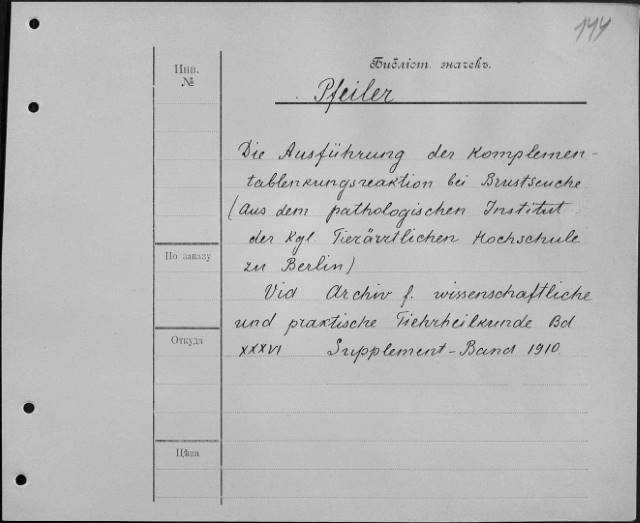 144
Инв.
№
Библіот. значекъ.
Pfeiler
Die Ausführung der Komplemen-
tablenkungsreaktion bei Brustseuche
(Aus dem pathologischen Institut
der Kgl Tierärztlichen Hochschule
zu Berlin)
Vid Archiv f. wissenschaftliche
und praktische Tiehrheilkunde Bd
XXXVI Supplement-Band 1910
По заказу
Откуда
Цѣна